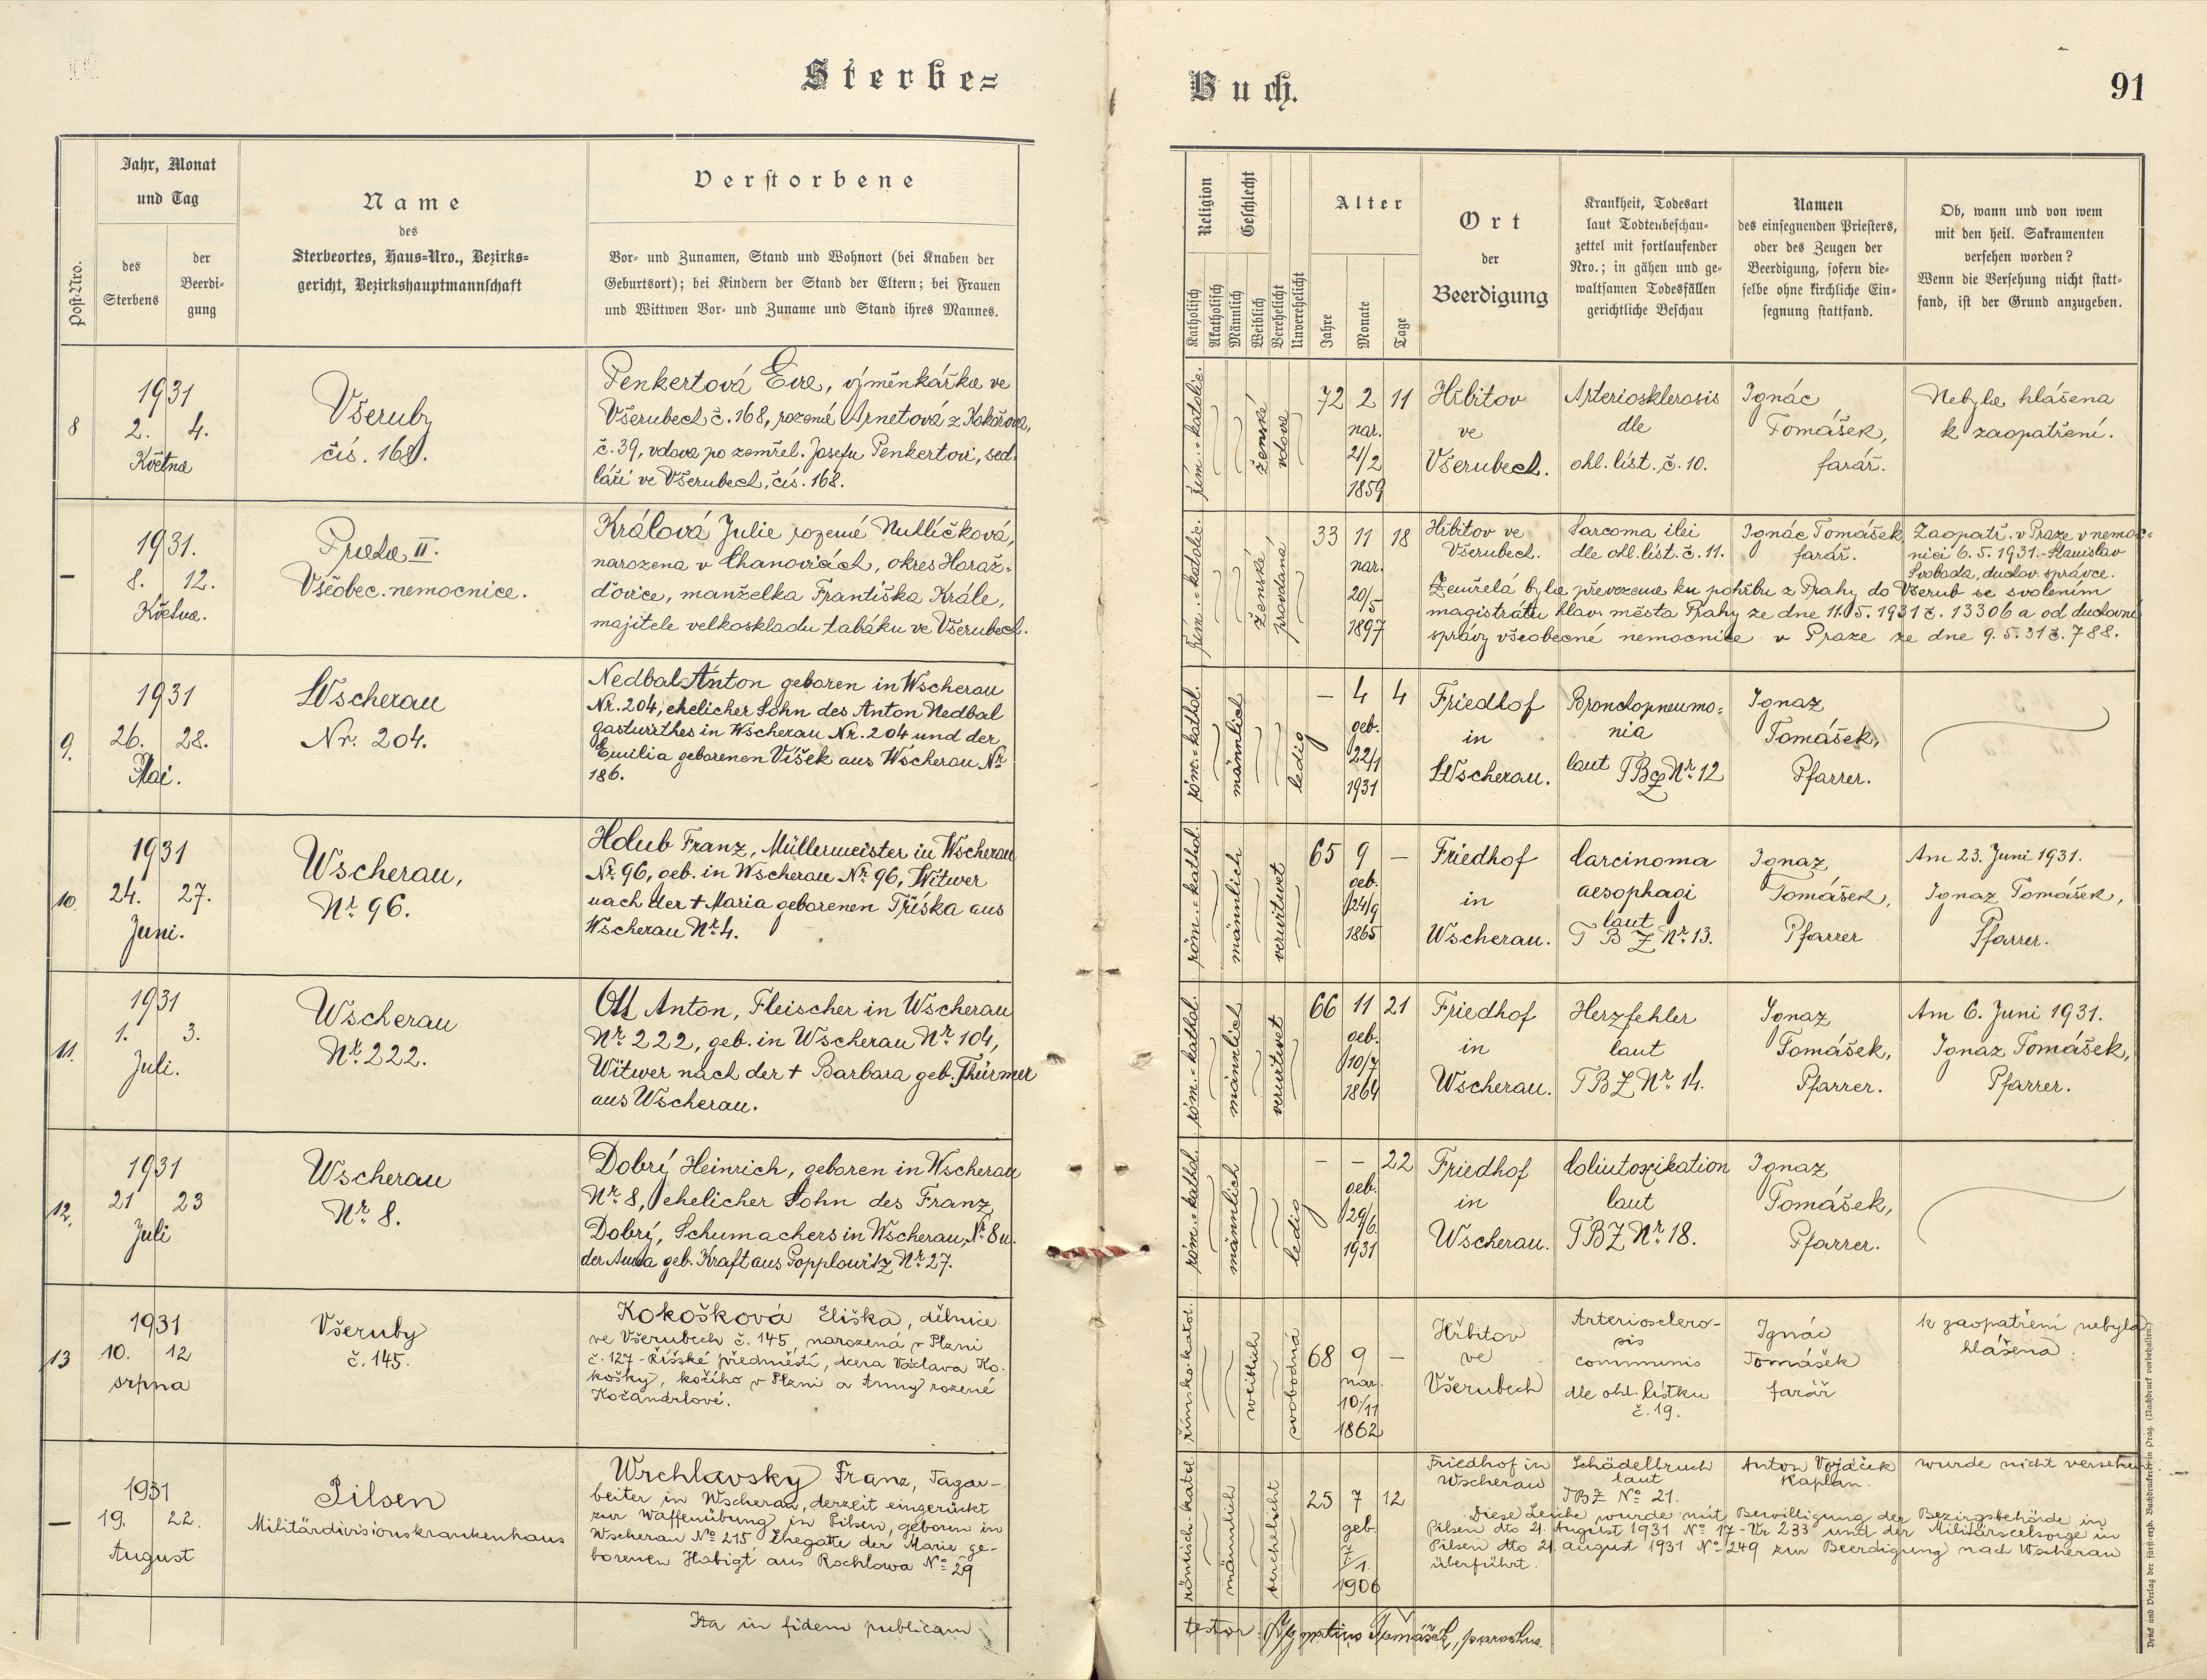 Sterbe-
Buch.
91
Post-Nro.
Jahr, Monat
und Tag
des
Sterbens
der
Beerdi-
gung
Name
des
Sterbeortes, Haus-Nro., Bezirks-
gericht, Bezirkshauptmannschaft
Verstorbene
Vor- und Zunamen, Stand und Wohnort (bei Knaben der
Geburtsort); bei Kindern der Stand der Eltern; bei Frauen
und Wittwen Vor- und Zuname und Stand ihres Mannes.
Religion
Katholisch
Akatholisch
Geschlecht
Männlich
Weiblich
Verehelicht
Unverehelicht
Alter
Jahre
Monate
Tage
Ort
der
Beerdigung
Krankheit, Todesart
laut Todtenbeschau-
zettel mit fortlaufender
Nro.; in gähen und ge-
waltsamen Todesfällen
gerichtliche Beschau
Namen
des einsegnenden Priesters,
oder des Zeugen der
Beerdigung, sofern die-
selbe ohne kirchliche Ein-
segnung stattfand.
Ob, wann und von wem
mit den heil. Sakramenten
versehen worden?
Wenn die Versehung nicht statt-
fand, ist der Grund anzugeben.
8
1931
2. 4.
Května
Všeruby
čís. 168.
Penkertová Eva, výměnkářka ve
Všerubech č. 168, rozená Arnetová z Kokořova,
č. 39, vdova po zemřel. Josefu Penkertovi, sed-
láři ve Všerubech, čís. 168.
řím.-katolic.
ženské
vdova
72 2 11
nar.
21/2
1859
Hřbitov
ve
Všerubech.
Arteriosklerosis
dle
ohl. list. č. 10.
Ignác
Tomášek,
farář.
Nebyla hlášena
k zaopatření.
–
1931.
8. 12.
Května.
Praha II.
Všeobec. nemocnice.
Králová Julie rozená Nutlíčková,
narozena v Chanovicích, okres Horaž-
ďovice, manželka Františka Krále,
majitele velkoskladu tabáku ve Všerubech.
řím.-katolic.
ženské
provdaná
33 11 18
nar.
20/5
1897
Hřbitov ve
Všerubech.
Sarcoma ilei
dle ohl. list. č. 11.
Ignác Tomášek
farář.
Zaopatř. v Praze v nemoc-
nici 6. 5. 1931. - Stanislav
Svoboda, duchov. správce.
Zemřelá byla převezena ku pohřbu z Prahy do Všerub se svolením
magistrátu hlav. města Prahy ze dne 11. 5. 1931 č. 13306 a od duchovní
správy všeobecné nemocnice v Praze ze dne 9. 5. 31 č. 788.
9.
1931
26. 28.
Mai.
Wscherau
Nr. 204.
Nedbal Anton geboren in Wscherau
Nr. 204, ehelicher Sohn des Anton Nedbal
Gastwirthes in Wscherau Nr. 204 und der
Emilia geborenen Víšek aus Wscherau Nr.
186.
röm.-kathol.
männlich
ledig
– 4 4
geb.
22/1
1931
Friedhof
in
Wscherau.
Bronchopneumo-
nia
laut TBZ Nr. 12
Ignaz
Tomášek,
Pfarrer.
10.
1931
24. 27.
Juni.
Wscherau,
Nr. 96.
Holub Franz, Müllermeister in Wscherau
Nr. 96, geb. in Wscherau Nr. 96, Witwer
nach der † Maria geborenen Tříska aus
Wscherau Nr. 4.
röm.-kathol.
männlich
verwitwet
65 9 –
geb.
24/9
1865
Friedhof
in
Wscherau.
Carcinoma
aesophagi
laut
T B Z Nr. 13.
Ignaz
Tomášek,
Pfarrer
Am 23. Juni 1931.
Ignaz Tomášek,
Pfarrer.
11.
1931
1. 3.
Juli.
Wscherau
Nr. 222.
Ott Anton, Fleischer in Wscherau
Nr. 222, geb. in Wscherau Nr. 104,
Witwer nach der † Barbara geb. Thürmer
aus Wscherau.
röm.-kathol.
männlich
verwitwet
66 11 21
geb.
10/7
1864
Friedhof
in
Wscherau.
Herzfehler
laut
TBZ Nr. 14.
Ignaz
Tomášek,
Pfarrer.
Am 6. Juni 1931.
Ignaz Tomášek,
Pfarrer.
12.
1931
21 23
Juli
Wscherau
Nr. 8.
Dobrý Heinrich, geboren in Wscherau
Nr. 8, ehelicher Sohn des Franz
Dobrý, Schumachers in Wscherau, Nr. 8 u.
der Anna geb. Kraft aus Popplowitz Nr. 27.
röm.-kathol.
männlich
ledig
– – 22
geb.
29/6.
1931
Friedhof
in
Wscherau.
Coliutoxikation
laut
TBZ Nr. 18.
Ignaz
Tomášek,
Pfarrer.
13
1931
10. 12
srpna
Všeruby
č. 145.
Kokošková Eliška, dělnice
ve Všerubech č. 145, narozená v Plzni
č. 127 - Říšské předměstí, dcera Václava Ko-
košky, kočího v Plzni a Anny rozené
Kočandrlové.
římsko-katol.
weiblich
svobodná
68 9 –
nar.
10/11
1862
Hřbitov
ve
Všerubech
Arterioscler-
osis
communis
dle ohl. lístku
č. 19.
Ignác
Tomášek
farář
k zaopatření nebyla
hlášena.
–
1931
19. 22.
August
Pilsen
Militärdivisionskrankenhaus
Wrchlavsky Franz, Tagar-
beiter in Wscherau, derzeit eingerückt
zur Waffenübung in Pilsen, geboren in
Wscherau No 215 Ehegatte der Marie ge-
borenen Habigt aus Rochlowa No 29
römisch-kathol.
männlich
verehelicht
25 7 12
geb.
7/1.
1906
Friedhof in
Wscherau
Schädelbruch
laut
TBZ No 21.
Anton Vojáček
Kaplan.
wurde nicht versehen
Diese Leiche wurde mit Bewilligung der Bezirgsbehörde in
Pilsen dto 21. August 1931 No 17-Vr 233 und der Militärseelsorge in
Pilsen dto 21. august 1931 No 249 zur Beerdigung nach Wscherau
überführt.
Ita in fidem publicam
testor: Ignatius Tomášek, parochus.
Druck und Verlag der fürsterzb. Buchdruckerei in Prag. (Nachdruck vorbehalten)